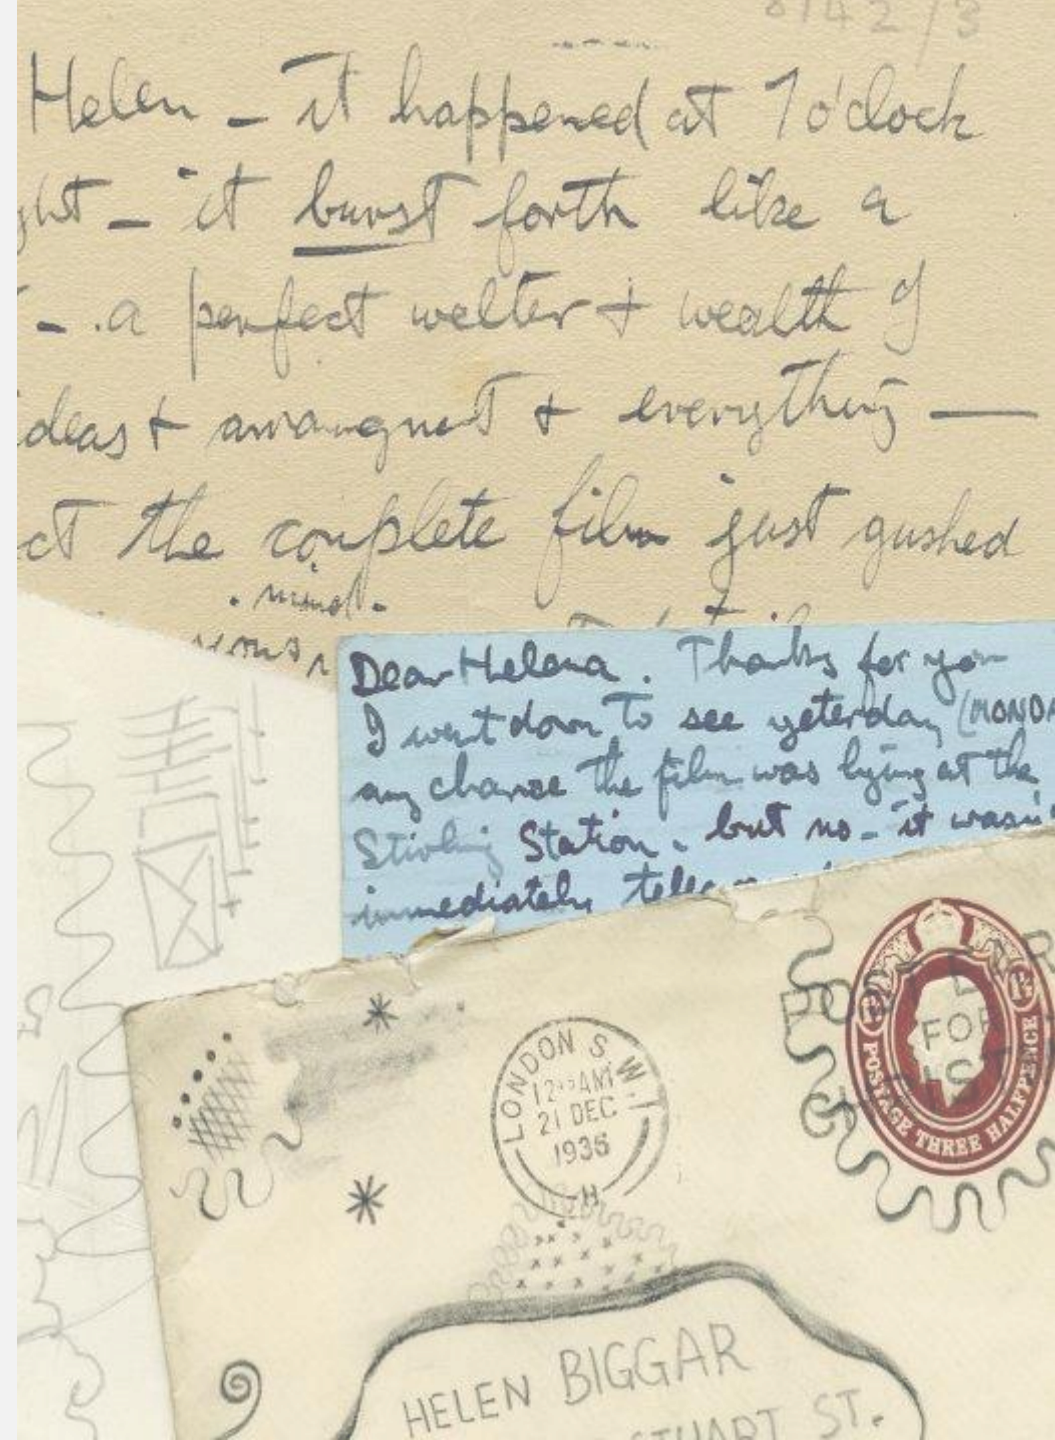 8142/3
Helen – it happened at 7 o'clock
ght – it burst forth like a
– . a perfect welter + wealth of
ideas + arrangmt + everything —
ct the complete film just gushed
. mind .
Dear Helena . Thanks for you
I went down to see yeterday (MONDA
any chance the film was lying at the
Stirling Station . but no – it wasn'
immediately
LONDON S.W.1
12 AM
21 DEC
1936
H
FOR
POSTAGE THREE HALFPENCE
HELEN BIGGAR
STUART ST.